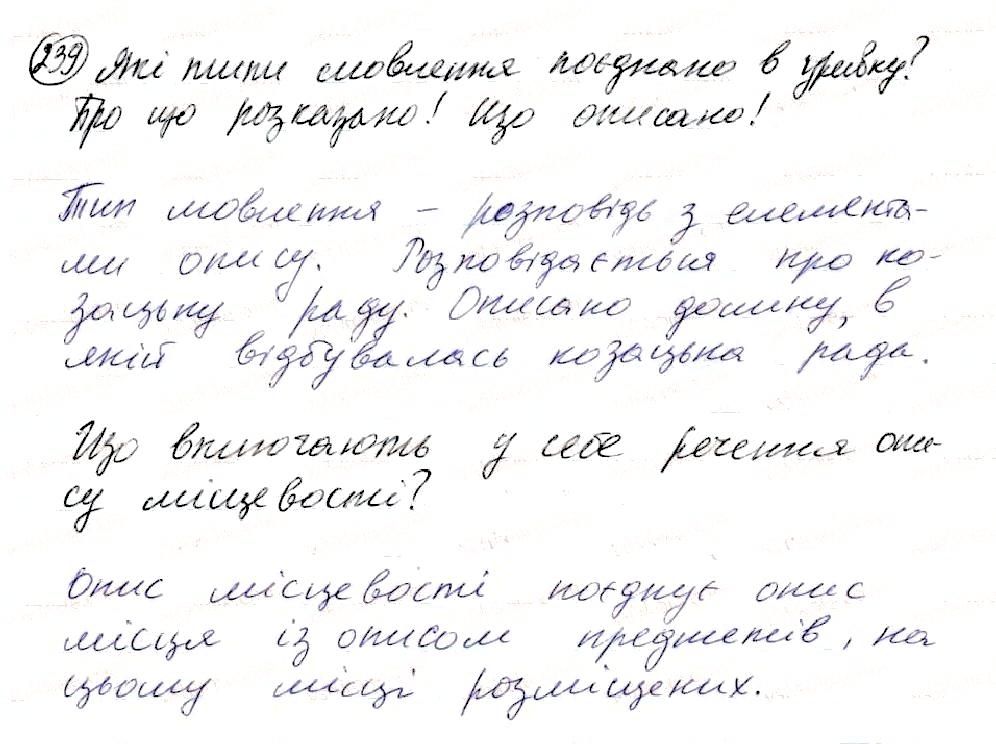 239 Які типи мовлення поєднано в уривку?
Про що розказано! Що описано!
Тип мовлення – розповідь з елемента-
ми опису. Розповідається про ко-
зацьку раду. Описано долину, в
якій відбувалась козацька рада.
Що включають у себе речення опи-
су місцевості?
Опис місцевості поєднує опис
місця із описом предметів, на
цьому місці розміщених.